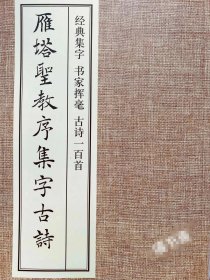 雁塔聖教序集字古詩
经典集字 书家挥毫 古诗一百首